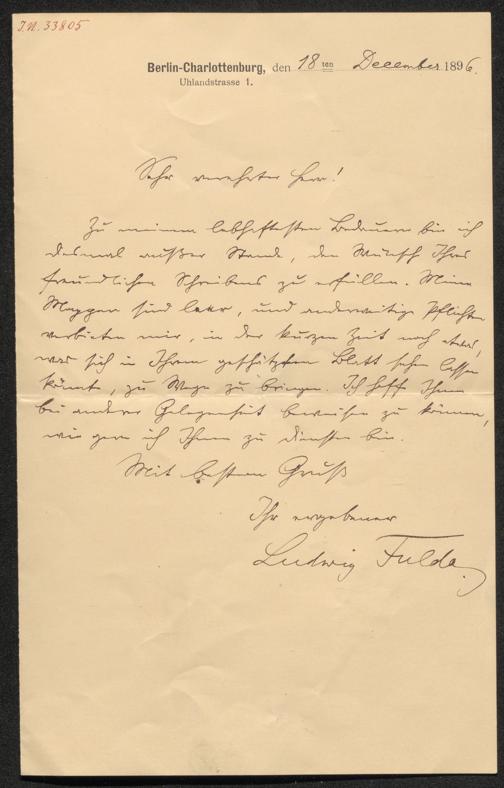 J.N. 33805
Berlin-Charlottenburg, den 18ten December 1896.
Uhlandstrasse 1.
Sehr verehrter Herr!
Zu meinem lebhaftesten Bedauern bin ich
diesmal außer Stande, den Wunsch Ihres
freundlichen Schreibens zu erfüllen. Meine
Mappen sind leer, und anderweitige Pflichten
verbieten mir, in der kurzen Zeit noch etwas,
was sich in Ihrem geschätzten Blatt sehen lassen
könnte, zu Wege zu bringen. Ich hoffe Ihnen
bei andrer Gelegenheit beweisen zu können,
wie gern ich Ihnen zu Diensten bin.
Mit bestem Gruß
Ihr ergebener
Ludwig Fulda